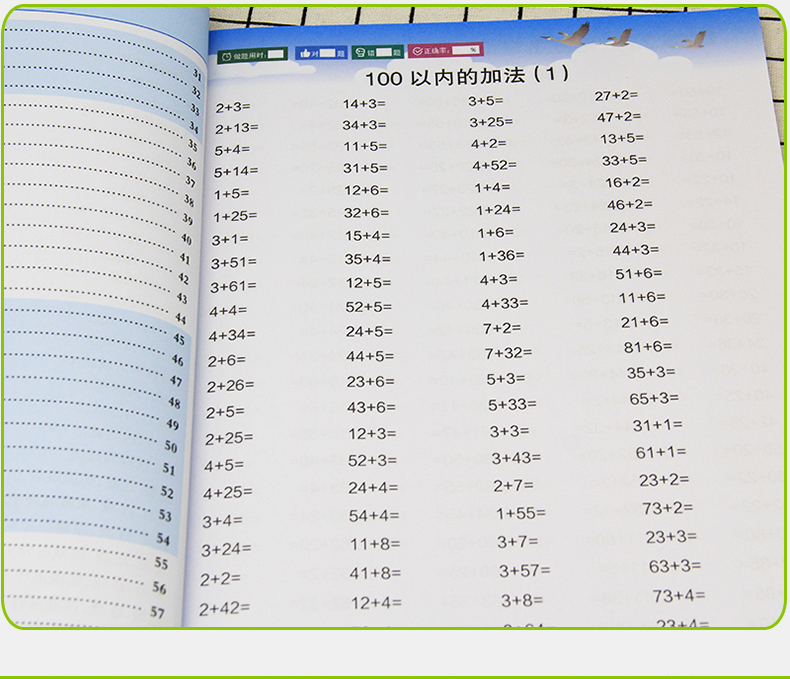 31
32
33
34
35
36
37
38
39
40
41
42
43
44
45
46
47
48
49
50
51
52
53
54
55
56
57
做题用时: 对 题 错 题 正确率: %
100 以内的加法(1)
2+3= 14+3= 3+5= 27+2=
2+13= 34+3= 3+25= 47+2=
5+4= 11+5= 4+2= 13+5=
5+14= 31+5= 4+52= 33+5=
1+5= 12+6= 1+4= 16+2=
1+25= 32+6= 1+24= 46+2=
3+1= 15+4= 1+6= 24+3=
3+51= 35+4= 1+36= 44+3=
3+61= 12+5= 4+3= 51+6=
4+4= 52+5= 4+33= 11+6=
4+34= 24+5= 7+2= 21+6=
2+6= 44+5= 7+32= 81+6=
2+26= 23+6= 5+3= 35+3=
2+5= 43+6= 5+33= 65+3=
2+25= 12+3= 3+3= 31+1=
4+5= 52+3= 3+43= 61+1=
4+25= 24+4= 2+7= 23+2=
3+4= 54+4= 1+55= 73+2=
3+24= 11+8= 3+7= 23+3=
2+2= 41+8= 3+57= 63+3=
2+42= 12+4= 3+8= 73+4=
23+4=